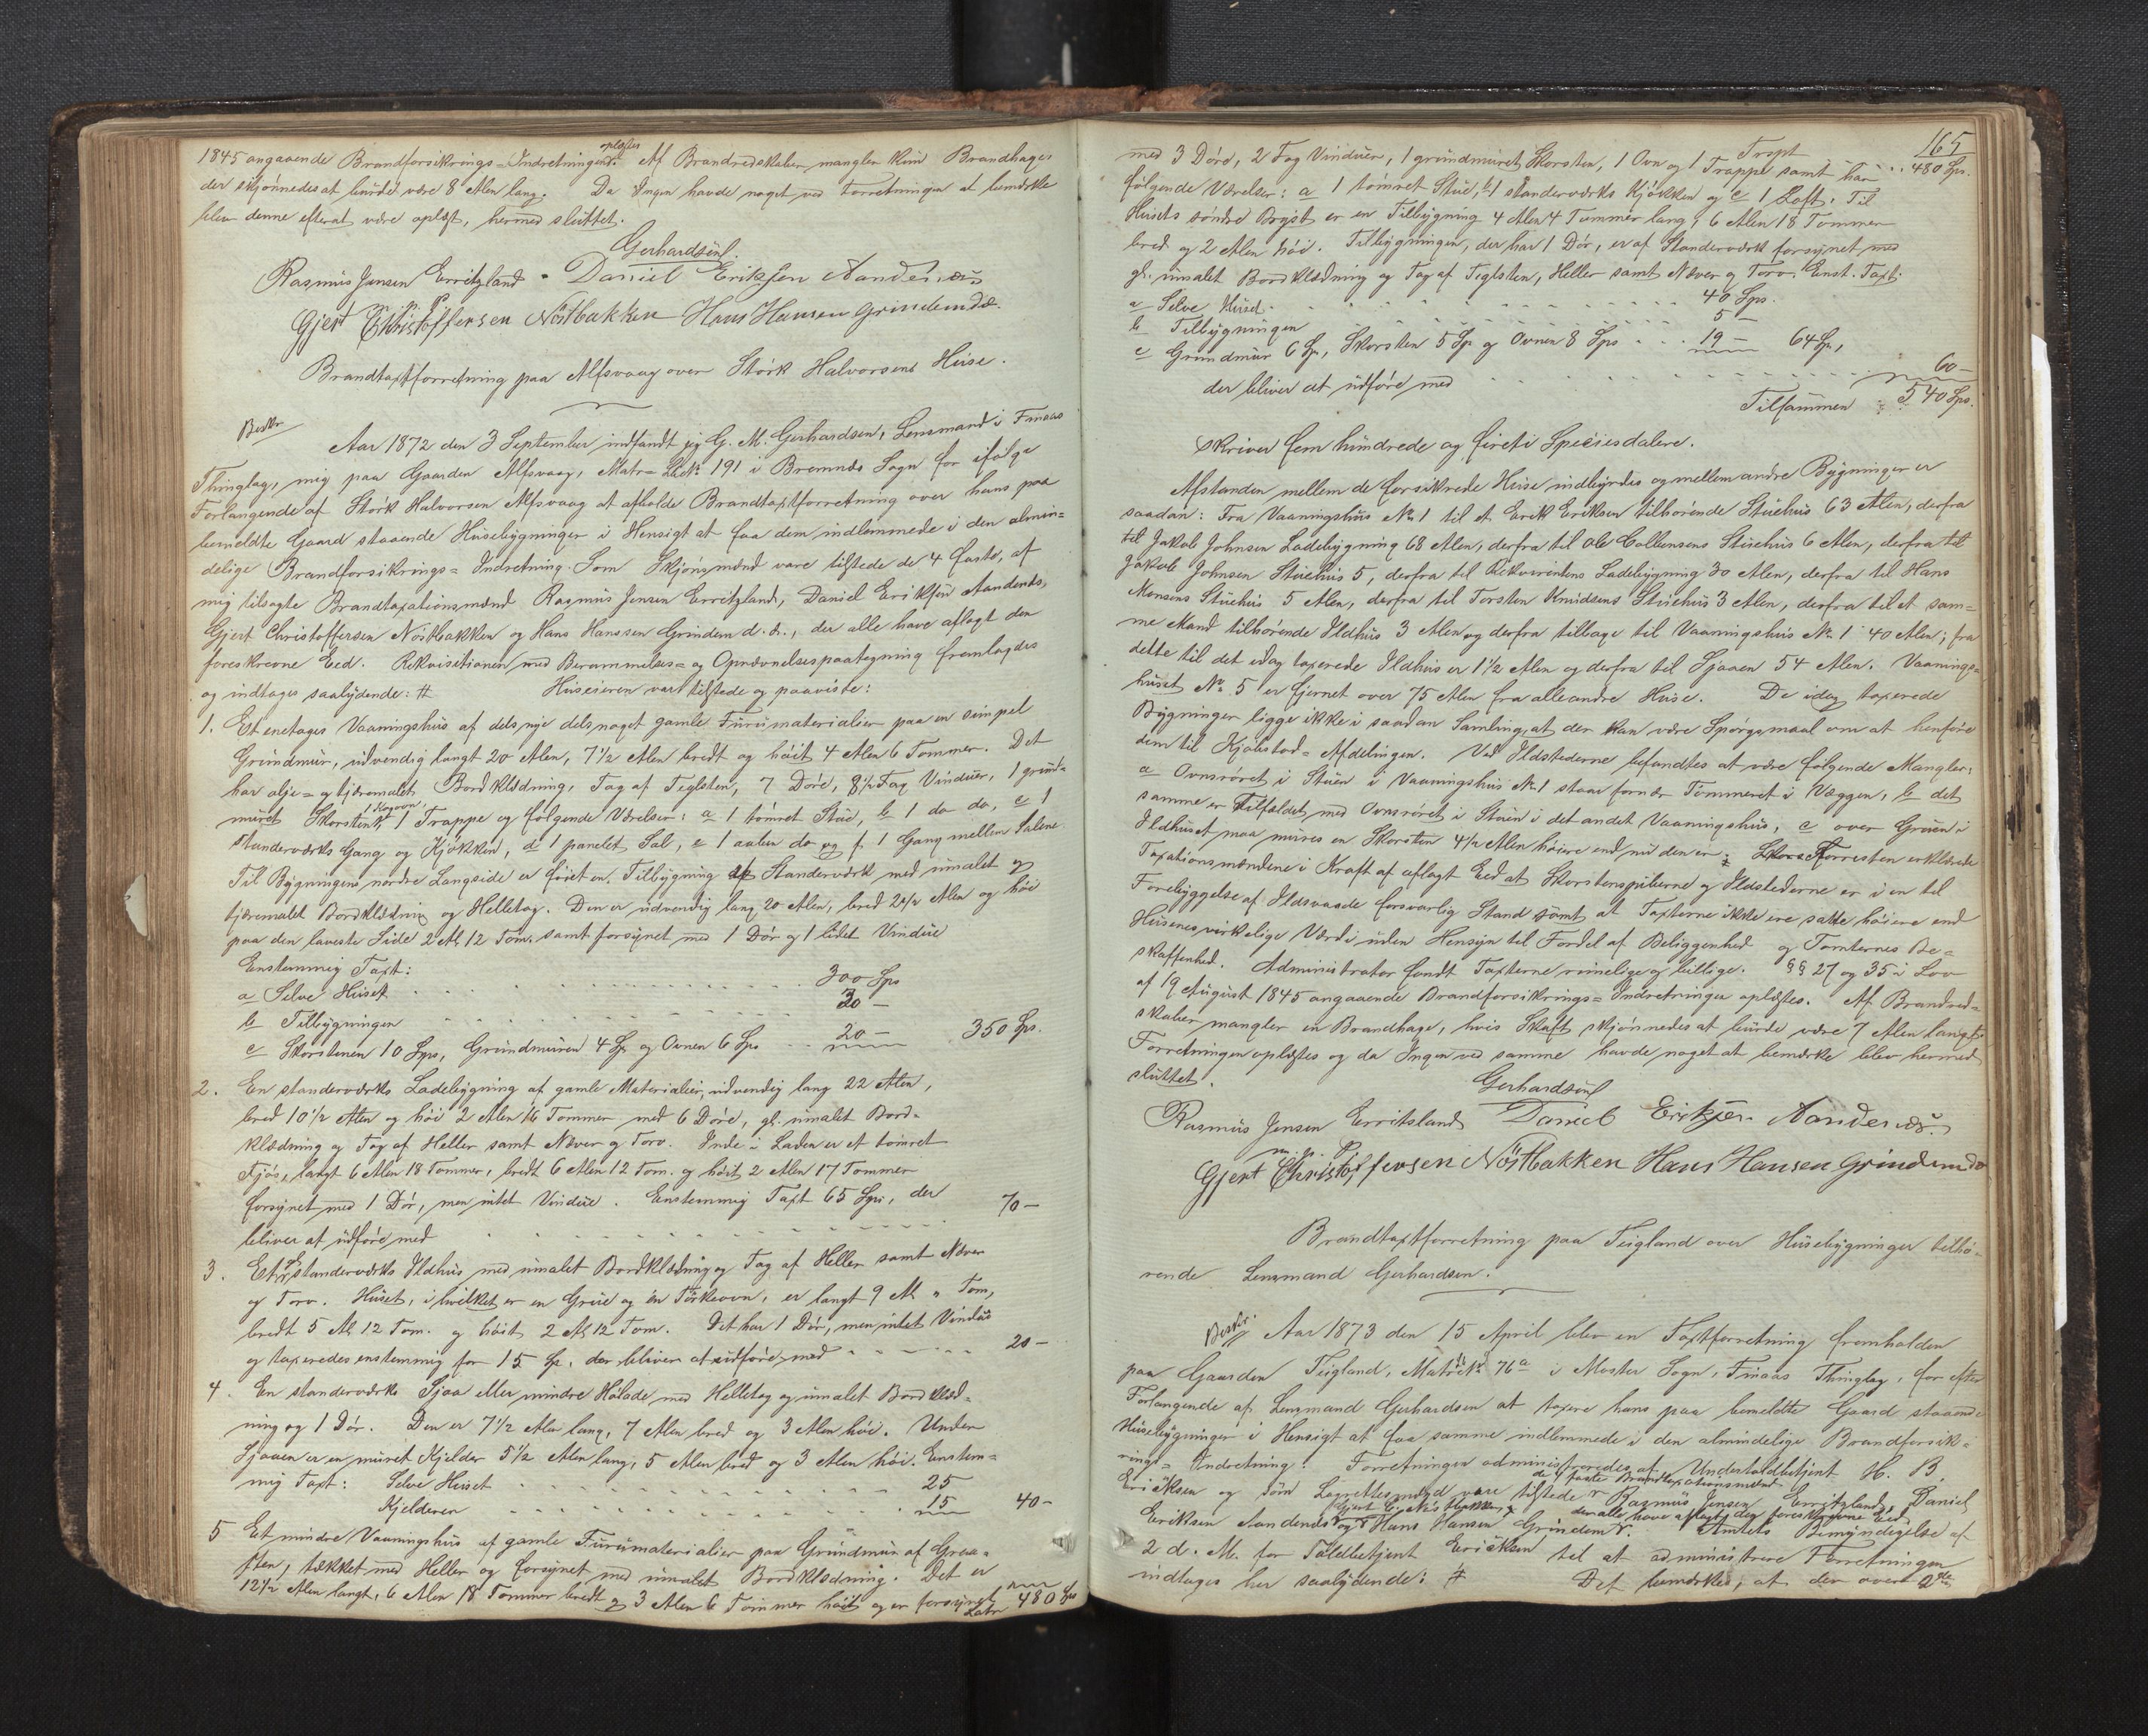 1845 angaaende Brandforsikrings-Indretningen oplæstes. Af Brandredskaber mangler kun Brandhager
der skjønnedes at burde være 8 Alen lang. Da Ingen havde noget ved Forretningen at bemærke
blev denne efterat være oplæst, hermed sluttet.
Gerhardsen
Rasmus Jensen Erritzland - Daniel Eriksen Aandenæs
m. p. P.
Gjert Christoffersen Nöstbakken Hans Hansen Grindemdæ.
Brandtaxtforretning paa Alfsvaag over Störk Halvorsens Huse.
Beskr
Aar 1872 den 3 September indfandt jeg G. M. Gerhardsen, Lensmand i Finaas
Thinglag, mig paa Gaarden Alfsvaag, Matr= 191 i Bremnæs Sogn for ifølge
Forlangende af Störk Halvorsen Alfsvaag at afholde Brandtaxtforretning over hans paa
bemeldte Gaard staaende Husebygninger i Hensigt at faa dem indlemmede i den almin=
delige Brandforsikrings=Indretning. Som Skjönsmænd vare tilstede de 4 faste, af
mig tilsagte Brandtaxationsmænd Rasmus Jensen Erritzland, Daniel Eriksen Aandenæs,
Gjert Christoffersen Nöstbakken og Hans Hanssen Grindem d. æ., der alle have aflagt den
foreskrevne Eed. Rekvisitionen med Berammelses= og Opnævnelsespaategning fremlagdes
og indtages saalydende: # Huseieren var tilstede og paaviste:
1. Et enetages Vaaningshus af dels nye dels noget gamle Furumaterialier paa en simpel
Grundmur, udvendig langt 20 Alen, 7 1/2 Alen bredt og höit 4 Alen 6 Tommer. Det
har olje= og tjæremalet Bordklædning, Tag af Teglsten, 7 Döre, 8 1/2 Fag Vinduer, 1 grund=
muret Skorsten, 1 Kogovn, 1 Trappe og følgende Værelser: a 1 tömret Stue, b 1 do do, c 1
standerværks Gang og Kjökken, d 1 panelet Sal, e 1 aaben do og f. 1 Gang mellem Salene
Til Bygningens nordre Langside er föiet en Tilbygning af Standerværk med umalet og
tjæremalet Bordklædning og Helletag. Den er udvendig lang 20 Alen, bred 2 1/2 Alen og höi
paa den laveste Side 2 Al. 12 Tom. samt forsynet med 1 Dör og 1 lidet Vindue
Enstemmig Taxt:
a Selve Huset . . . 300 Sps
b Tilbygningen . . . 30 —
c Skorstenen 10 Sps, Grundmuren 4 Sp og Ovnen 6 Sps . . 20 — 350 Sps.
2. En standerværks Ladebygning af gamle Materialier, udvendig lang 22 Alen,
bred 10 1/2 Alen og höi 2 Alen 16 Tommer med 6 Döre, gl. umalet Bord-
klædning og Tag af Heller samt Næver og Torv. Inde i Laden er et tömret
Fjös, langt 6 Alen 18 Tommer, bredt 6 Alen 12 Tom. og höit 2 Alen 17 Tommer
forsynet med 1 Dör, men intet Vindue. Enstemmig Taxt 65 Sps, der
bliver at udföre med . . . 70 —
3. Et standerværks Ildhus med umalet Bordklædning og Tag af Heller samt Næver
og Torv. Huset, i hvilket er en Grue og en Törkeovn, er langt 9 Al. " Tom,
bredt 5 Al. 12 Tom. og höit 2 Al. 12 Tom. Det har 1 Dör, men intet Vindue
og taxeredes enstemmig for 15 Sp. der bliver at udföre med . . . 20 —
4. En standerværks Sjaa eller mindre Hölade med Helletag og umalet Bordklæd=
ning og 1 Dör. Den er 7 1/2 Alen lang, 7 Alen bred og 3 Alen höi. Under
Sjaaen er en muret Kjelder 5 1/2 Alen lang, 5 Alen bred og 3 Alen höi. Enstem=
mig Taxt: Selve Huset . . . 25
Kjelderen . . . 15 40 —
5 Et mindre Vaaningshus af gamle Furumaterialier paa Grundmur af Graa=
sten, tækket med Heller og forsynet med umalet Bordklædning. Det er
12 1/2 Alen langt, 6 Alen 18 Tommer bredt og 3 Alen 6 Tommer höit og er forsynet
Latr 480 Sps
165
Trspt . . 480 Sps.
med 3 Döre, 2 Fag Vinduer, 1 grundmuret Skorsten, 1 Ovn og 1 Trappe samt har
fölgende Værelser: a 1 tömret Stue, b 1 standerværks Kjökken og c 1 Loft. Til
Husets söndre Bryst er en Tilbygning 4 Alen 4 Tommer lang, 6 Alen 18 Tommer
bred og 2 Alen höi. Tilbygningen, der har 1 Dör, er af Standerværk forsynet med
gl. umalet Bordklædning og Tag af Teglsten, Heller samt Næver og Torv. Enst. Taxt:
a Selve Huset . . . 40 Sps.
b Tilbygningen . . . 5 —
c Grundmur 6 Sp, Skorsten 5 Sp og Ovnen 8 Sps . . . 19 — 64 Sp,
der bliver at udföre med . . . 60 —
Tilsammen . . 540 Sps.
Skriver fem hundrede og fireti Speciesdalere.
Afstanden mellem de forsikrede Huse indbyrdes og mellem andre Bygninger er
saadan: Fra Vaaningshus No 1 til et Erik Eriksen tilhörende Stuehus 63 Alen, derfra
til Jakob Johnsen Ladebygning 68 Alen, derfra til Ole Colbensens Stuehus 6 Alen, derfra til
Jakob Johnsen Stuehus 5, derfra til Rekvirentens Ladebygning 30 Alen, derfra til Hans
Monsens Stuehus 5 Alen, derfra til Torsten Knudsens Stuehus 3 Alen, derfra til et sam=
me Mand tilhörende Ildhus 3 Alen og derfra tilbage til Vaaningshus No. 1 40 Alen; fra
dette til det idag taxerede Ildhus er 1 1/2 Alen og derfra til Sjaaen 54 Alen. Vaanings=
huset No 5 er fjernet over 75 Alen fra alle andre Huse. De idag taxerede
Bygninger ligge ikke i saadan Samling, at der kan være Spörgsmaal om at henföre
dem til Kjöbstad=Afdelingen. Ved Ildstederne befandtes at være fölgende Mangler:
a Ovnsröret i Stuen i Vaaningshus No 1 staar for nær Tömmeret i Væggen, b det
samme er Tilfældet med Ovnsröret i Stuen i det andet Vaaningshus, c over Gruen i
Ildhuset maa mures en Skorsten 4 1/2 Alen höiere end nu den er; Forresten erklærede
Taxationsmændene i Kraft af aflagt Eed at Skorstenspiberne og Ildstederne er i en til
Forebyggelse af Ildsvaade forsvarlig Stand samt at Taxterne ikke ere satte höiere end
Husenes virkelige Værdi uden Hensyn til Fordel af Beliggenhed og Tomternes Be=
skaffenhed. Administrator fandt Taxterne rimelige og billige. §§ 27 og 35 i Lov
af 19 August 1845 angaaende Brandforsikrings=Indretninger oplæstes. Af Brandred=
skaber mangler en Brandhage, hvis Skaft skjönnedes at burde være 7 Alen langt.
Forretningen oplæstes og da Ingen ved samme havde noget at bemærke blev hermed
sluttet.
Gerhardsen
Rasmus Jensen Erritsland Daniel Eriksen Aandenæs.
m. p. P.
Gjert Christoffersen Nöstbakken Hans Hansen Grindemdæ
Brandtaxtforretning paa Teigland over Husebygninger tilhö=
rende Lensmand Gerhardsen.
Beskr.
Aar 1873 den 15 April blev en Taxtforretning fremholden
paa Gaarden Teigland, Matr No 76a i Moster Sogn, Finaas Thinglag, for efter
Forlangende af Lensmand Gerhardsen at taxere hans paa bemeldte Gaard staaende
Husebygninger i Hensigt at faa samme indlemmede i den almindelige Brandforsik=
rings=Indretning. Forretningen administreredes af Undertoldbetjent H. B.
Ericksen og som Lagrettesmænd vare tilstede de 4 faste Brandtaxationsmænd Rasmus Jensen Erritzland, Daniel
Eriksen Aandenæs Gjert C. Nöstbakken og Hans Hansen Grindem der alle have aflagt den foreskrevne Eed. Amtets Bemyndigelse af
2 d. M. for Toldbetjent Ericksen til at administrere Forretningen
indtages her saalydende: # Det bemærkes, at den over 2de